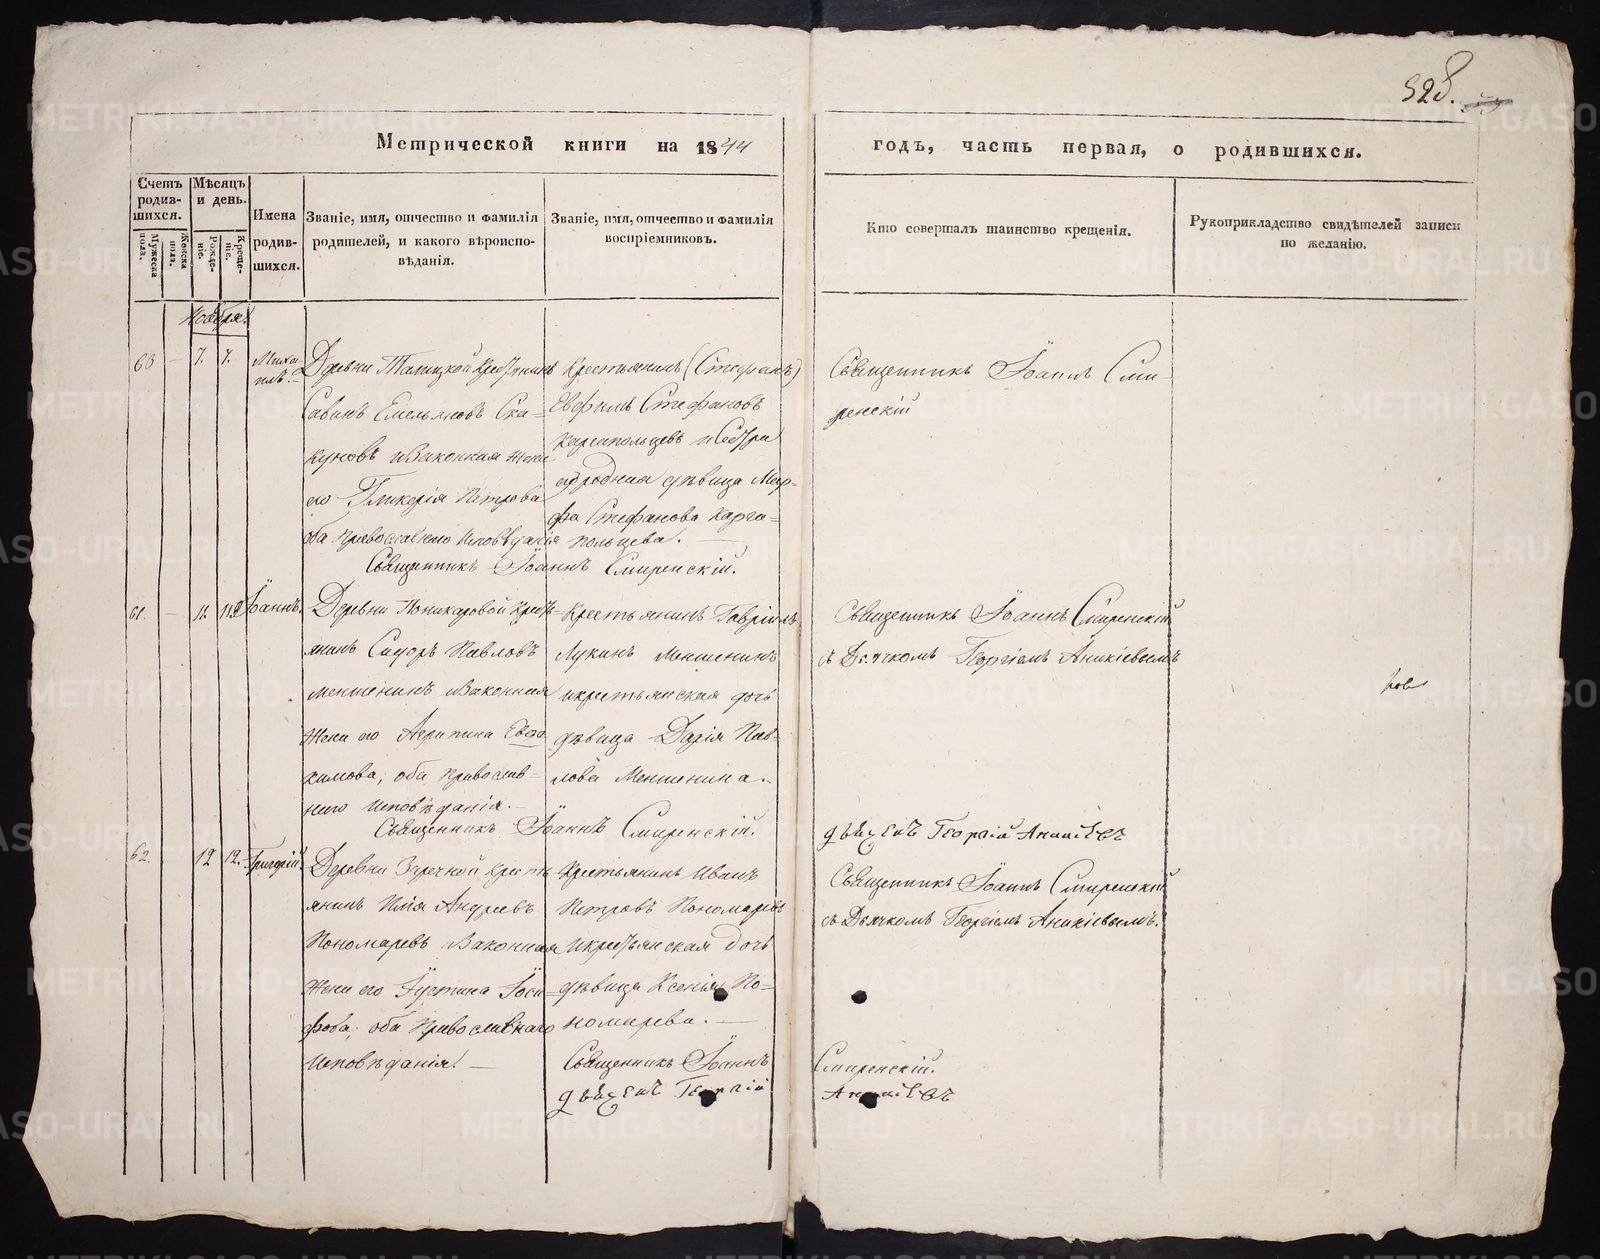 528.
Метрической книги на 1844
годъ, часть первая, о родившихся.
Счетъ родив-шихся.
Мужеска пола.
Женска пола.
Мѣсяцъ и день.
Рожде-ніе.
Креще-ніе.
Имена родив-шихся.
Званіе, имя, отчество и фамилія
родителей, и какого вѣроиспо-
вѣданія.
Званіе, имя, отчество и фамилія
воспріемниковъ.
Кто совершалъ таинство крещенія.
Рукоприкладство свидѣтелей записи
по желанію.
Ноября
60 7. 7. Миха-
илъ.
Деревни Талицкой Крестьянинъ
Саванъ Емельяновъ Ска-
куновъ и Законная жена
его Гликерія Петрова
оба Православнаго Исповѣданія
Крестьянинъ (Стефанъ)
Евфимъ Стефановъ
Каргапольцевъ и Сестра
его родная дѣвица Мар-
фа Стефанова Карга-
польцева.
Священникъ Іоаннъ Смиренскій.
Священникъ Іоаннъ Сми-
ренскій
61. 11. Іоаннъ.
Деревни Поникаровой Кресть-
янинъ Сидоръ Павловъ
Меншенинъ и Законная
жена его Агрипина Евдо
кимова, оба Православ-
наго Исповѣданія.
Крестьянинъ Гавріилъ
Лукинъ Меншенинъ
и крестьянская дочь
дѣвица Дарія Пав-
лова Меншенина.
Священникъ Іоаннъ Смиренскій.
Священникъ Іоаннъ Смиренскій
съ Дьячкомъ Георгіемъ Аникіевымъ
дьячекъ Георгій Аникіевъ
62. 12 12. Григорій.
Деревни Заречной Кресть
янинъ Илія Андреевъ
Пономаревъ и Законная
жена его Іустина Іоси-
фова, оба Православнаго
Исповѣданія.
Крестьянинъ Иванъ
Петровъ Пономаревъ
и крестьянская дочь
дѣвица Ксенья По-
номарева.
Священникъ Іоаннъ Смиренскій
съ Дьячкомъ Георгіемъ Аникіевымъ.
Священникъ Іоаннъ Смиренскій.
дьячекъ Георгій Аникіевъ
METRIKI.GASO-URAL.RU